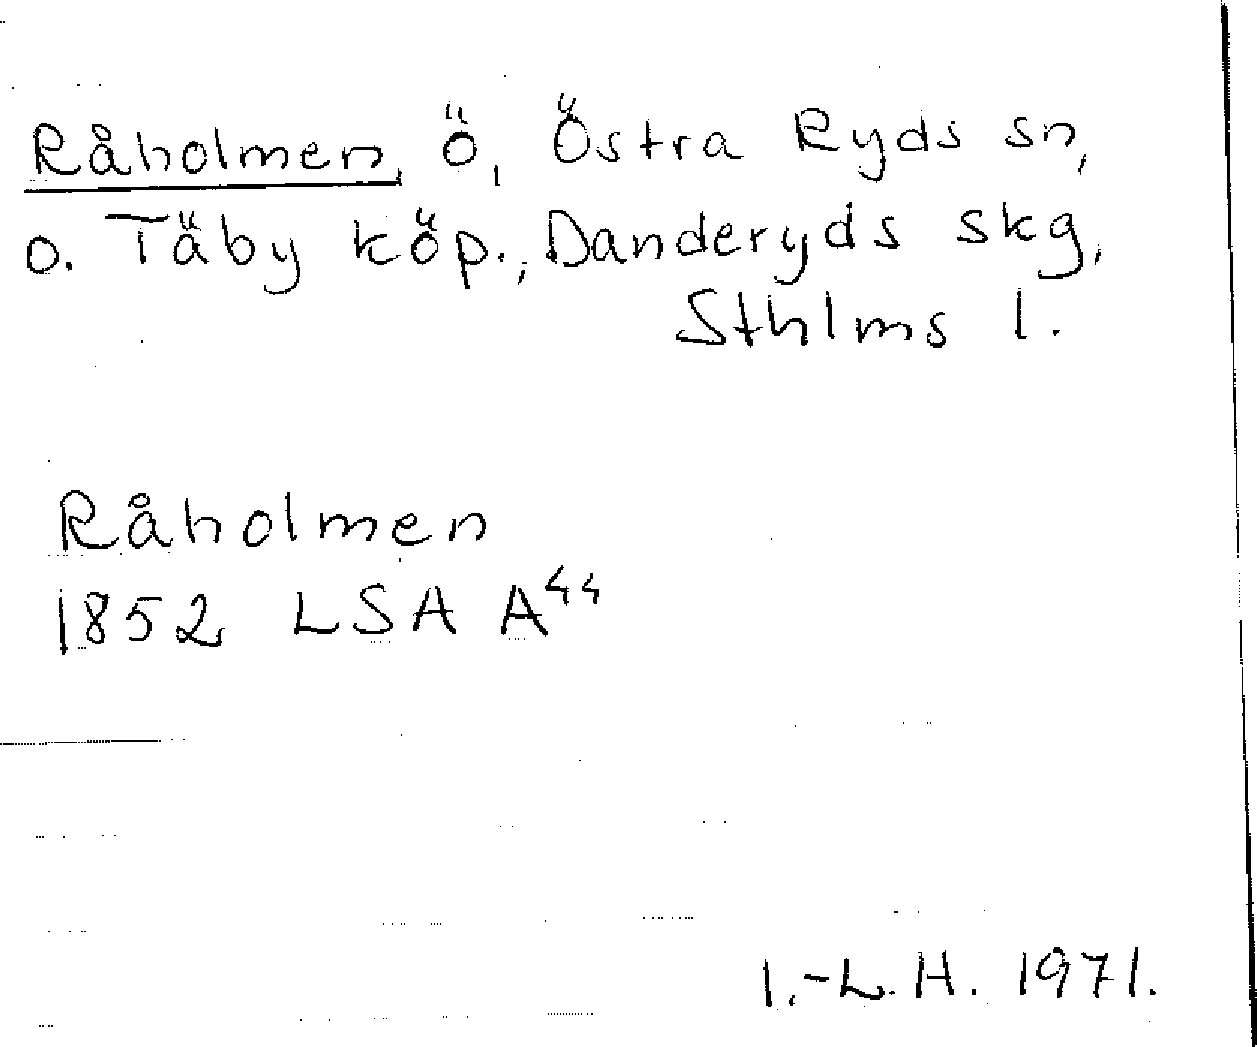 Råholmen, ö, Östra Ryds sn,
o. Täby köp., Danderyds skg,
Sthlms l.
Råholmen
1852 LSA A44
I.-L. H. 1971.